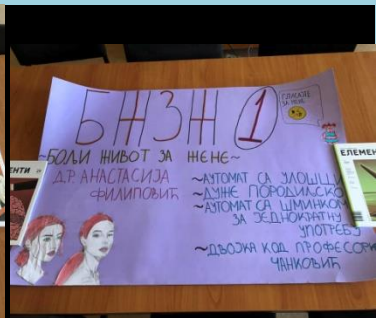 БЖЗЖ 1
ГЛАСАЈТЕ
ЗА МЕНЕ
БОЉИ ЖИВОТ ЗА ЖЕНЕ~
ДР АНАСТАСИЈА
ФИЛИПОВИЋ
~АУТОМАТ СА УЛОШЦИ
~ДУЖЕ ПОРОДИЉСКО
~АУТОМАТ СА ШМИНКОМ
ЗА ЈЕДНОКРАТНУ
УПОТРЕБУ
~ДВОЈКА КОД ПРОФЕСОРИ
ЧАНКОВИЋ
ЕНТИ
ЕЛЕМЕН